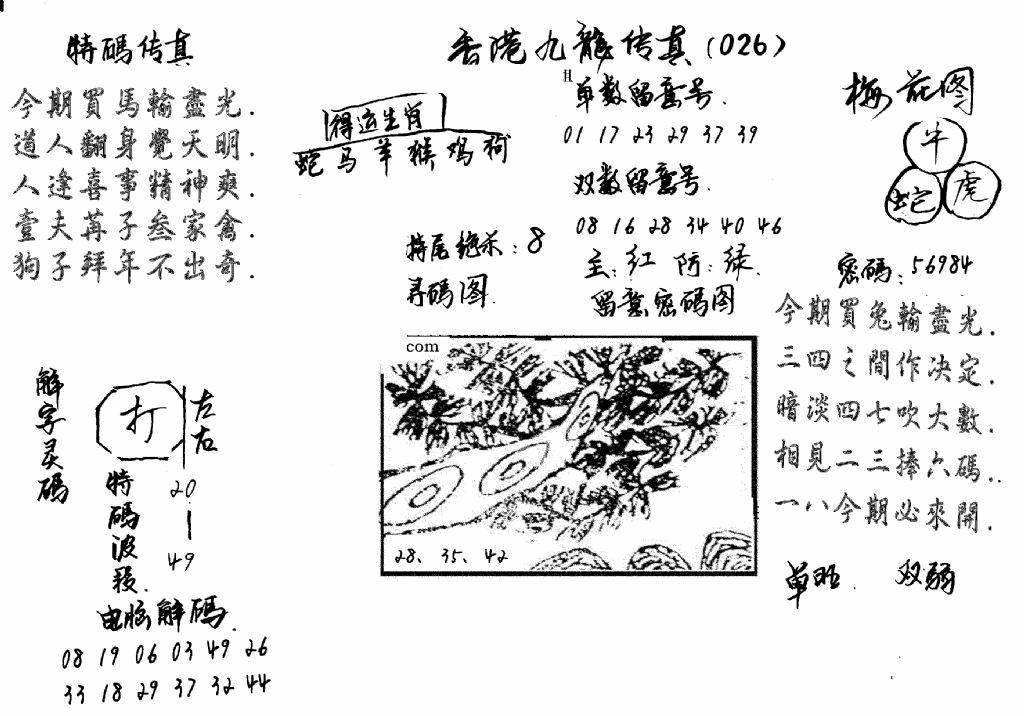 特碼传真
今期買馬輸盡光.
道人翻身覺天明.
人逢喜事精神爽.
壹夫苒子叁家禽.
狗子拜年不出奇.
香港九龍传真(026)
得运生肖
蛇马羊猴鸡狗
H
单数留意号.
01 17 23 29 37 39
双数留意号.
08 16 28 34 40 46
主:红 防:绿.
留意密码图
特尾绝杀:8
寻码图.
梅花图
牛
蛇 虎
密码:56984
今期買兔輸盡光.
三四之間作决定.
暗淡四七吹大數.
相見二三捧六碼..
一八今期必來開.
单旺. 双弱
com
28、35、42
解字灵碼
打
左右
特碼波段.
20
|
49
电脑解碼.
08 19 06 03 49 26
33 18 29 37 32 44